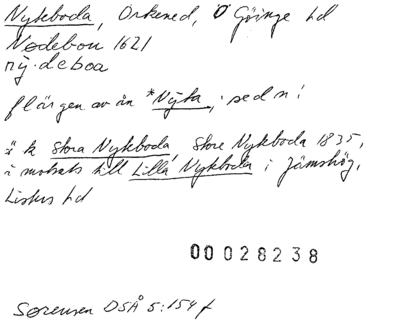 Nykeboda, Örkened, Ö Göinge hd
Nødebou 1621
ny·deboa
flärgen av ån *Nyta, ; se d n!
ä k Stora Nykeboda, Store Nykboda 1835,
i motsats till Lilla Nykeboda i Jämshög,
Listers hd
00 028238
Sørensen DSÅ 5:154 f